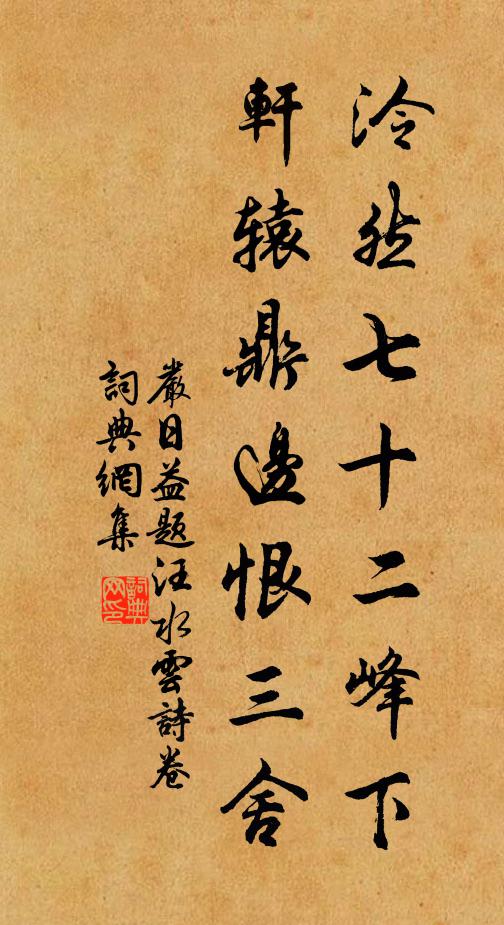 泠然七十二峰下
軒辕鼎邊恨三舍
嚴日益題汪水雲詩卷
詞典網集
詞典网印